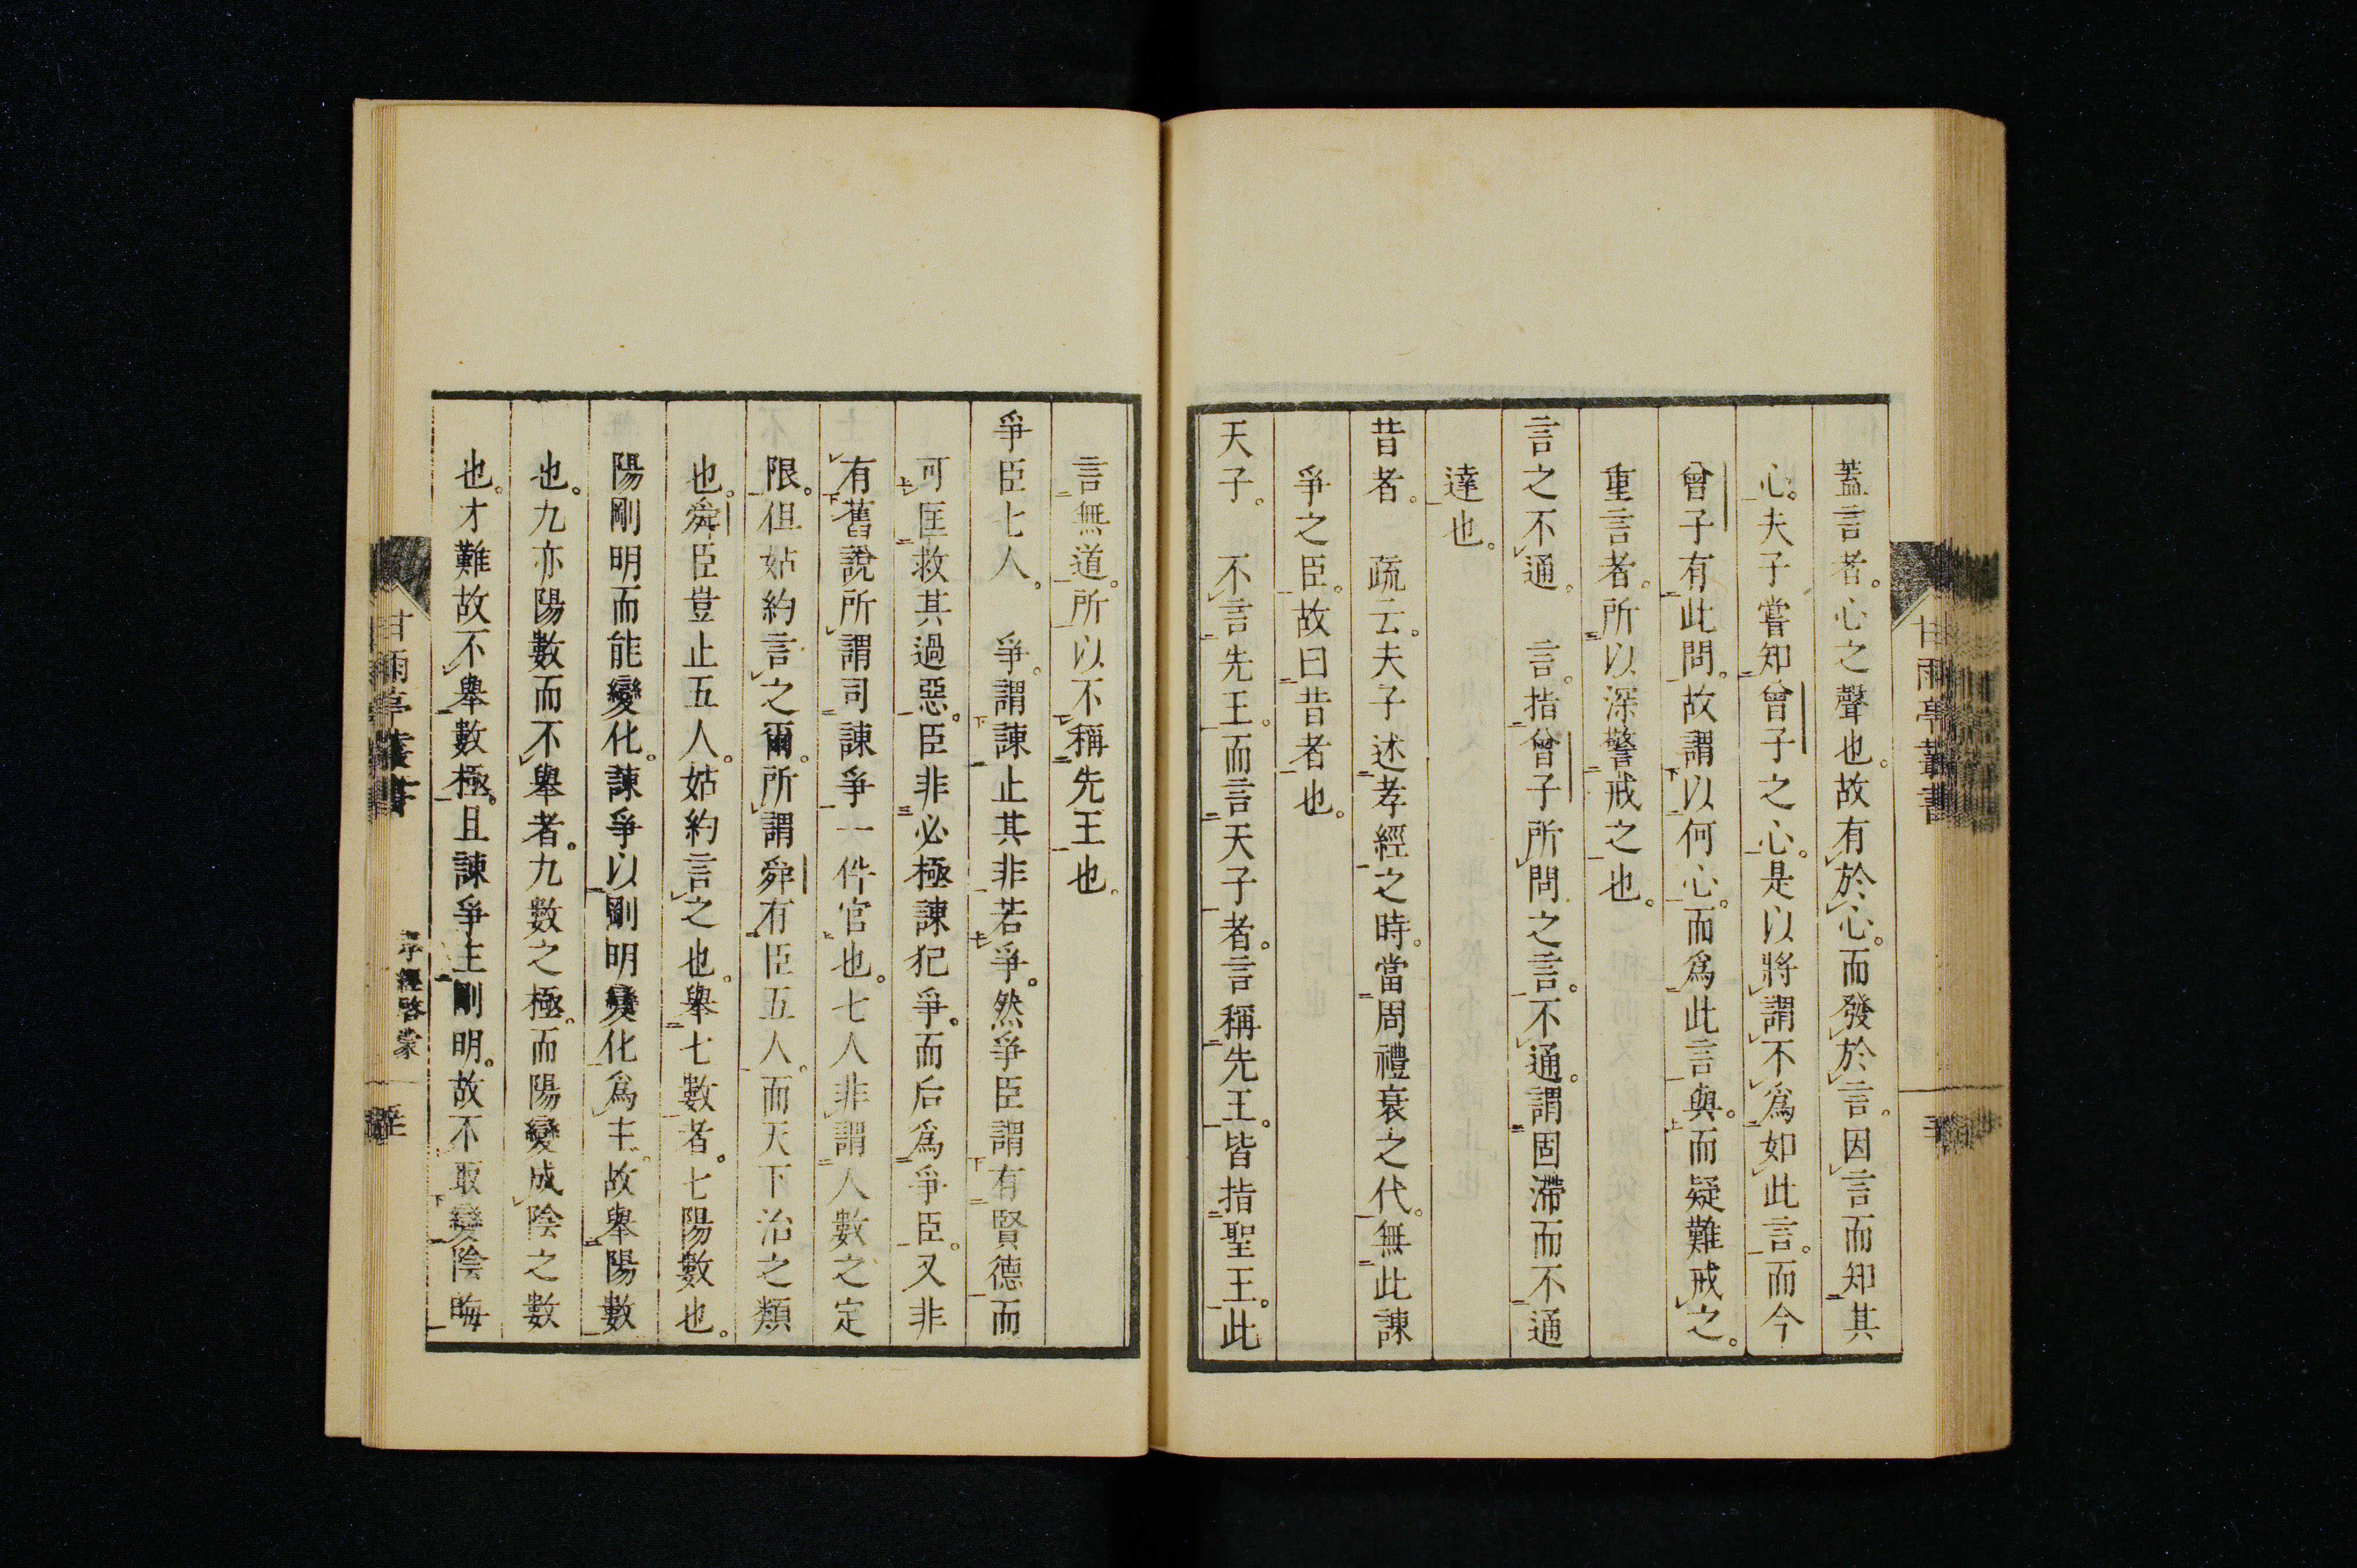 蓋言者。心之聲也。故有於心。而發於言。因言而知其
心。夫子嘗知曾子之心。是以將謂不爲如此言。而今
曾子有此問。故謂以何心。而爲此言與。而疑難戒之。
重言者。所以深警戒之也。
言之不通。　言。指曾子所問之言。不通。謂固滯而不通
達也。
昔者。　疏云。夫子述孝經之時。當周禮衰之代。無此諫
爭之臣。故曰昔者也。
天子。　不言先王。而言天子者。言稱先王。皆指聖王。此
甘雨亭叢書
言無道。所以不稱先王也。
爭臣七人。　爭。謂諫止其非若爭。然爭臣謂有賢德而
可匡救其過惡。臣非必極諫犯爭。而后爲爭臣。又非
有舊說所謂司諫爭一件官也。七人非謂人數之定
限。但姑約言之爾。所謂舜有臣五人。而天下治之類
也。舜臣豈止五人。姑約言之也。舉七數者。七陽數也。
陽剛明而能變化。諫爭以剛明變化爲主。故舉陽數
也。九亦陽數而不舉者。九數之極。而陽變成陰之數
也。才難故不舉數極。且諫爭主剛明。故不取變陰晦
甘雨亭叢書
孝經啓蒙